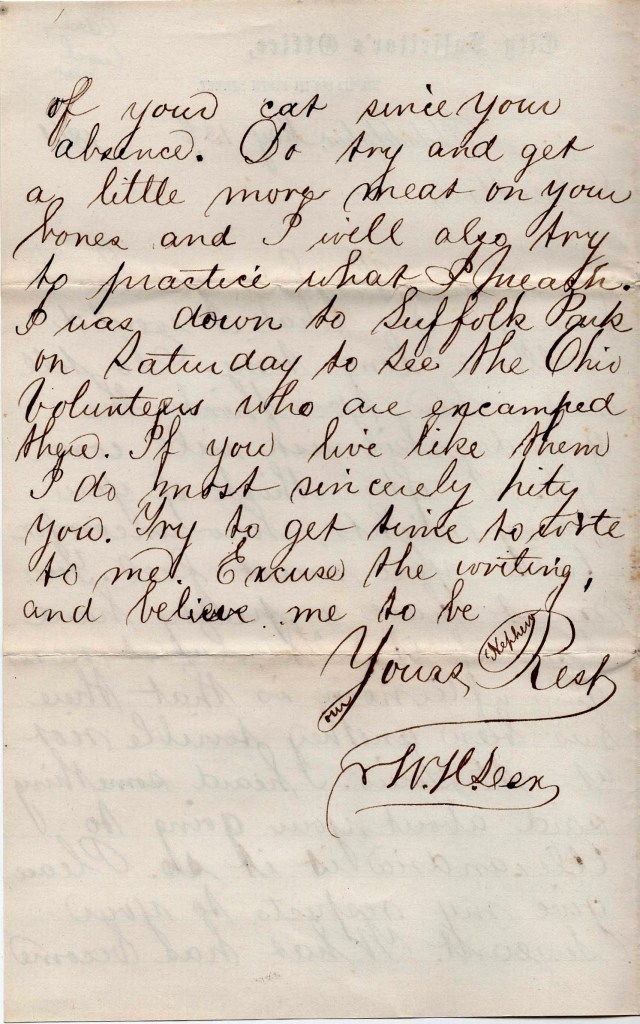 of your cat since your
absence. Do try and get
a little more meat on your
bones and I will also try
to practice what I preach.
I was down to Suffolk Park
on Saturday to see the Ohio
Volunteers who are encamped
there. If you live like them
I do most sincerely pity
you. Try to get time to write
to me. Excuse the writing,
and believe me to be
Nephew
Yours, Rest
W. H.